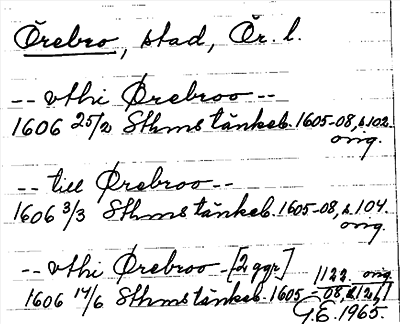 Örebro, stad, Ör. l.
-- vthi Ørebroo --
1606 25/2 Sthms tänkeb. 1605-08, s. 102.
orig.
-- till Ørebroo --
1606 3/3 Sthms tänkeb. 1605-08, s. 104.
orig.
-- vthi Ørebroo - [2 ggr]
1606 14/6 Sthms tänkeb. 1605-08,
orig.
G.E. 1965.